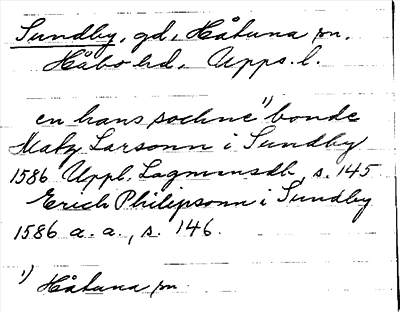 Sundby, gd, Håtuna sn,
Håbo hd, Upps. l.
en hans sochne¹⁾ bonde
Matz Larsonn i Sundby
1586 Uppl. Lagmansdb, s. 145
Erich Philipsonn i Sundby
1586 a. a., s. 146.
¹⁾ Håtuna sn.